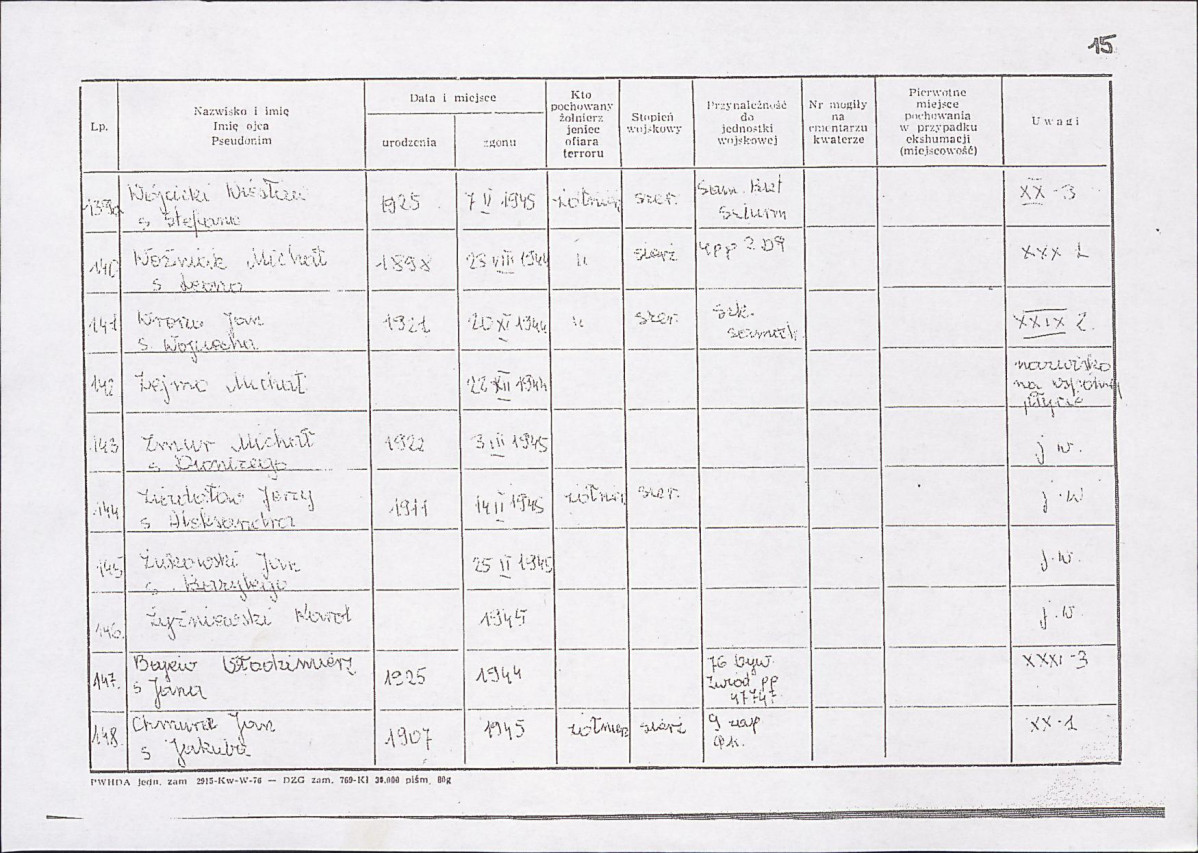 15
Lp.
Nazwisko i imię
Imię ojca
Pseudonim
Data i miejsce
urodzenia
zgonu
Kto
pochowany
żołnierz
jeniec
ofiara
terroru
Stopień
wojskowy
Przynależność
do
jednostki
wojskowej
Nr mogiły
na
cmentarzu
kwaterze
Pierwotne
miejsce
pochowania
w przypadku
ekshumacji
(miejscowość)
Uwagi
Wójcicki Wiesław 1925 7 II 1945 żołnierz szer. Sam. Bat XX-3
s Stefana Szturm
140 Woźniak Michał 1898 23 VIII 1944 " sierż 4pp 2 DP XXX 1
s Leona
141 Wrona Jan 1921 20 XI 1944 " szer. Szk. XXIX 2.
s Wojciecha
142 Żejmo Michał 22 XII 1944 nazwisko
na wspólnej
płycie
143 Żmur Michał 1922 3 III 1945 j w.
s Dionizego
144 Jerzy 1911 14 II 1945 żołnierz szer. j.w
s Aleksandra
145 Żukowski Jan 25 II 1945 j.w.
s.
146. Żyźniewski Karol 1945 j.w
147. Włodzimierz 1925 1944 76 byw. XXXI-3
s Jana pp
47747
148. Chmura Jan 1907 1945 żołnierz sierż 9 zap XX-1
s Jakuba
PWHDA jedn. zam 2915-Kw-W-76 — DZG zam. 769-Kl 30.000 piśm. 80g